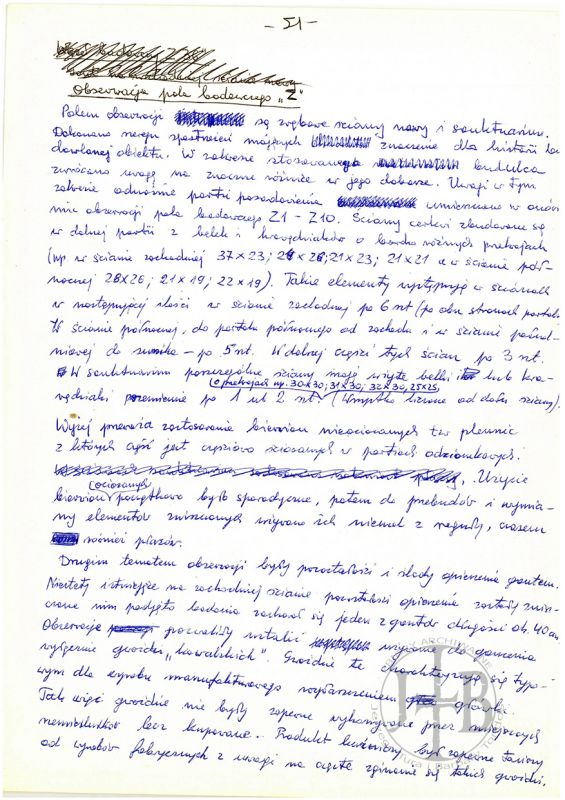 - 51 -
Obserwacja pola badawczego „Z"
Polem obserwacji są zrębowe ściany nawy i sanktuarium.
Dokonano szeregu spostrzeżeń mających znaczenie dla historii bu-
dowlanej obiektu. W zakresie stosowanego budulca
zwrócono uwagę na znaczne różnice w jego doborze. Uwagi w tym
zakresie odnośnie partii posadowienia umieszczono w omówie-
niu obserwacji pola badawczego Z1 - Z10. Ściany cerkwi zbudowane są
w dolnej partii z belek i krawędziaków o bardzo różnych przekrojach
(np. w ścianie zachodniej 37×23; 26×26; 21×23; 21×21 a w ścianie pół-
nocnej 28×26; 21×19; 22×19). Takie elementy występują w ścianach
w następującej ilości w ścianie zachodniej po 6 szt (po obu stronach portalu
W ścianie północnej, do portalu północnego od zachodu i w ścianie połud-
niowej do - po 5 szt. W dalszej części tych ścian po 3 szt.
W sanktuarium poszczególne ściany mają użyte belki lub kra-
o przekrojach np. 30×30; 31×30; 32×30, 25×25,
wędziaki po 1 lub 2 szt. (Wszystko liczone od dołu ściany).
Wyżej przeważa zastosowanie bierwion nieociosanych tzw płaznic
z których część jest częściowo ściosanych w partiach odziomkowych.
Użycie
ociosanych
bierwion początkowo było sporadyczne, potem do przebudów i wymia-
ny elementów zniszczonych używano ich niemal z reguły, czasem
również płazów.
Drugim tematem obserwacji były pozostałości i ślady opierzenia gontem.
Niestety istniejące na zachodniej ścianie pozostałości opierzenia zostały znisz-
czone nim podjęto badania zachował się jeden z gontów długości ok. 40 cm
Obserwacje pozwoliły ustalić używane do gontowania
wyłącznie gwoździ „kowalskich". Gwoździe te charakteryzują się typo-
wym dla wyrobu manufakturowego główki.
Tak więc gwoździe nie były zapewne wykonywane przez miejscowych
rzemieślników lecz kupowane. Produkt był zapewne tańszy
od wyrobów fabrycznych z uwagi na częste zginanie się takich gwoździ.